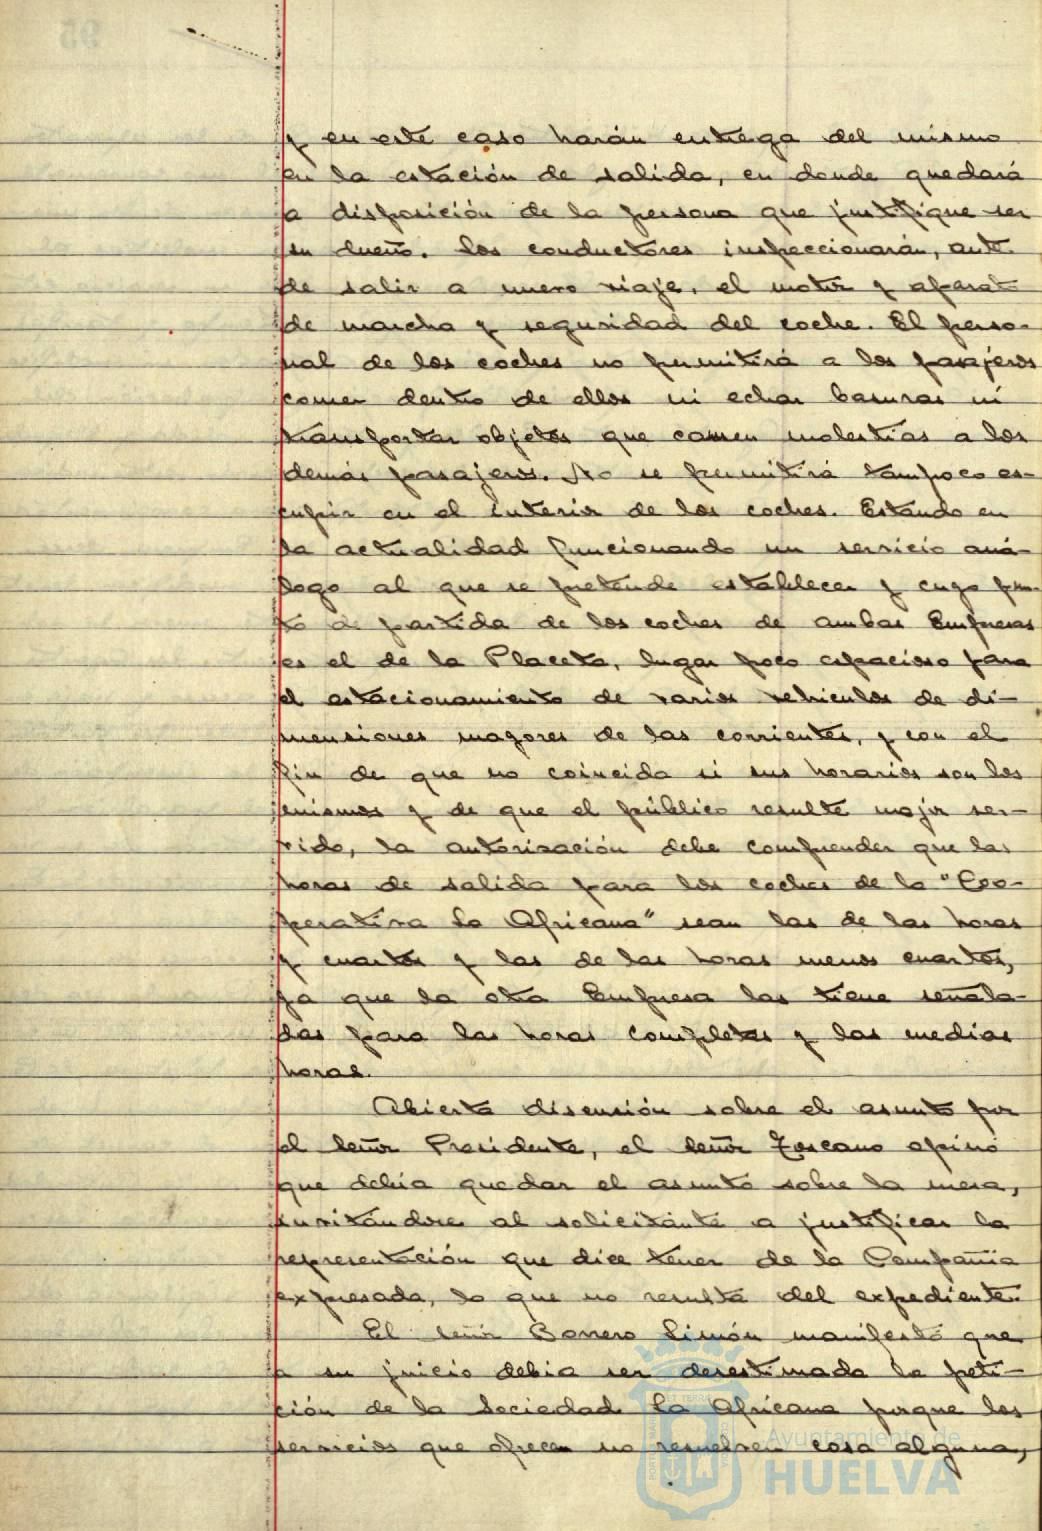 y en este caso harán entrega del mismo
en la estación de salida, en donde quedará
a disposición de la persona que justifique ser
su dueño. Los conductores inspeccionarán, ante
de salir a nuevo viaje, el motor y aparat
de marcha y seguridad del coche. El perso-
nal de los coches no permitirá a los pasajeros
comer dentro de ellos ni echar basuras ni
transportar objetos que causen molestias a los
demás pasajeros. No se permitirá tampoco es-
cupir en el interior de los coches. Estando en
la actualidad funcionando un servicio aná-
logo al que se pretende establecer y cuyo pun-
to de partida de los coches de ambas Empresas
es el de la Placeta, lugar poco espacioso para
el estacionamiento de varios vehiculos de di-
mensiones mayores de las corrientes, y con el
fin de que no coincida si sus horarios son los
mismos y de que el público resulte mejor ser-
vido, la autorisación debe comprender que las
horas de salida para los coches de la "Coo-
perativa La Africana" sean las de las horas
y cuartos y las de las horas menos cuartos,
ya que la otra Empresa las tiene señala-
das para las horas completas y las medias
horas.
Abierta discusión sobre el asunto por
el señor Presidente, el señor Toscano opinó
que debia quedar el asunto sobre la mesa,
invitándose al solicitante a justificar la
representación que dice tener de la Compañia
expresada, lo que no resulta del expediente.
El señor Borrero Limón manifestó que
a su juicio debia ser desestimada la peti-
ción de la Sociedad La Africana porque los
servicios que ofrecen no resuelven cosa alguna,
Ayuntamiento de
HUELVA